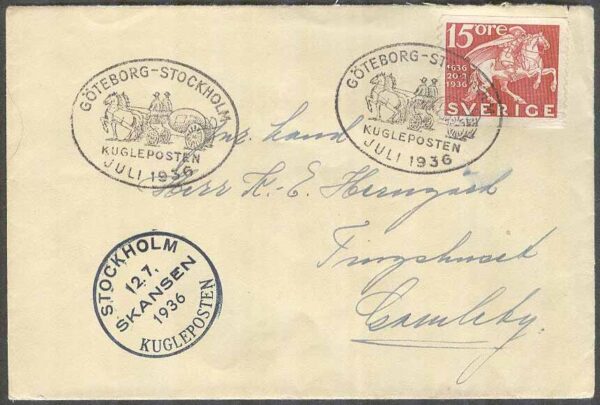 GÖTEBORG-STOCKHOLM
KUGLEPOSTEN
JULI 1936
GÖTEBORG-S
KUGLEPOSTEN
JULI 1936
15 öre
1636
20 2
1936
SVERIGE
Herr K.-E.
Tingshuset
Gamleby.
STOCKHOLM
12.7.
SKANSEN
1936
KUGLEPOSTEN